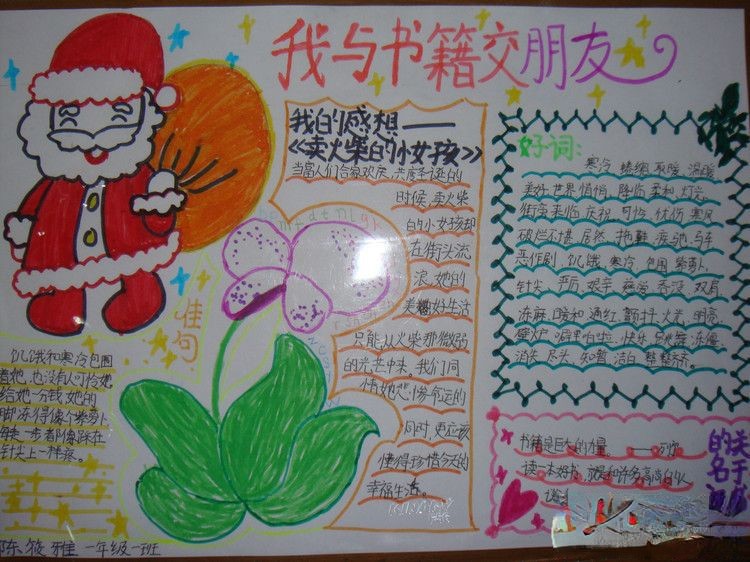 我与书籍交朋友
我的感想——
《卖火柴的小女孩》
当富人们合家欢庆,共度圣诞的
时候,卖火柴
的小女孩却
在街头流
浪,她的
美好生活
只能从火柴那微弱
的光芒中来,我们同
情她悲惨命运的
同时,更应该
懂得珍惜今天的
幸福生活。
佳句
饥饿和寒冷包围
着她,也没有人可怜她
给她一分钱,她的
脚冻得像个紫萝卜
每走一步都像踩在
针尖上一样疼。
陈筱雅 一年级一班
好词:
寒冷 蜷缩 取暖 温暖
美好 世界 悄悄 降临 柔和 灯光
街道 来临 庆祝 可怜 忧伤 寒风
破烂不堪 居然 拖鞋 疾驰 马车
恶作剧 饥饿 寒冷 包围 紫萝卜
针尖
冻麻 暖和 通红 颤抖 火光 明亮
壁炉 噼里啪啦 快乐
消失 尽头 知觉 洁白 整整齐齐
书籍是巨大的力量。——列宁
读一本好书,就是和许多高尚的人
关于
的名